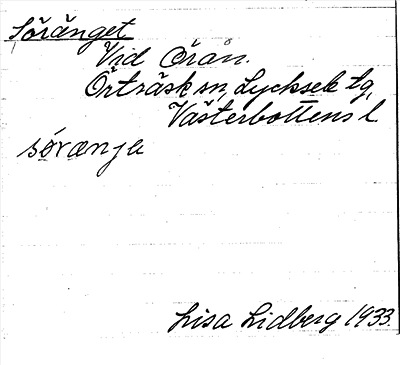 Söränget
Vid Örån.
Örträsk sn, Lycksele tg,
Västerbottens l
sörænja
Lisa Lidberg 1933.